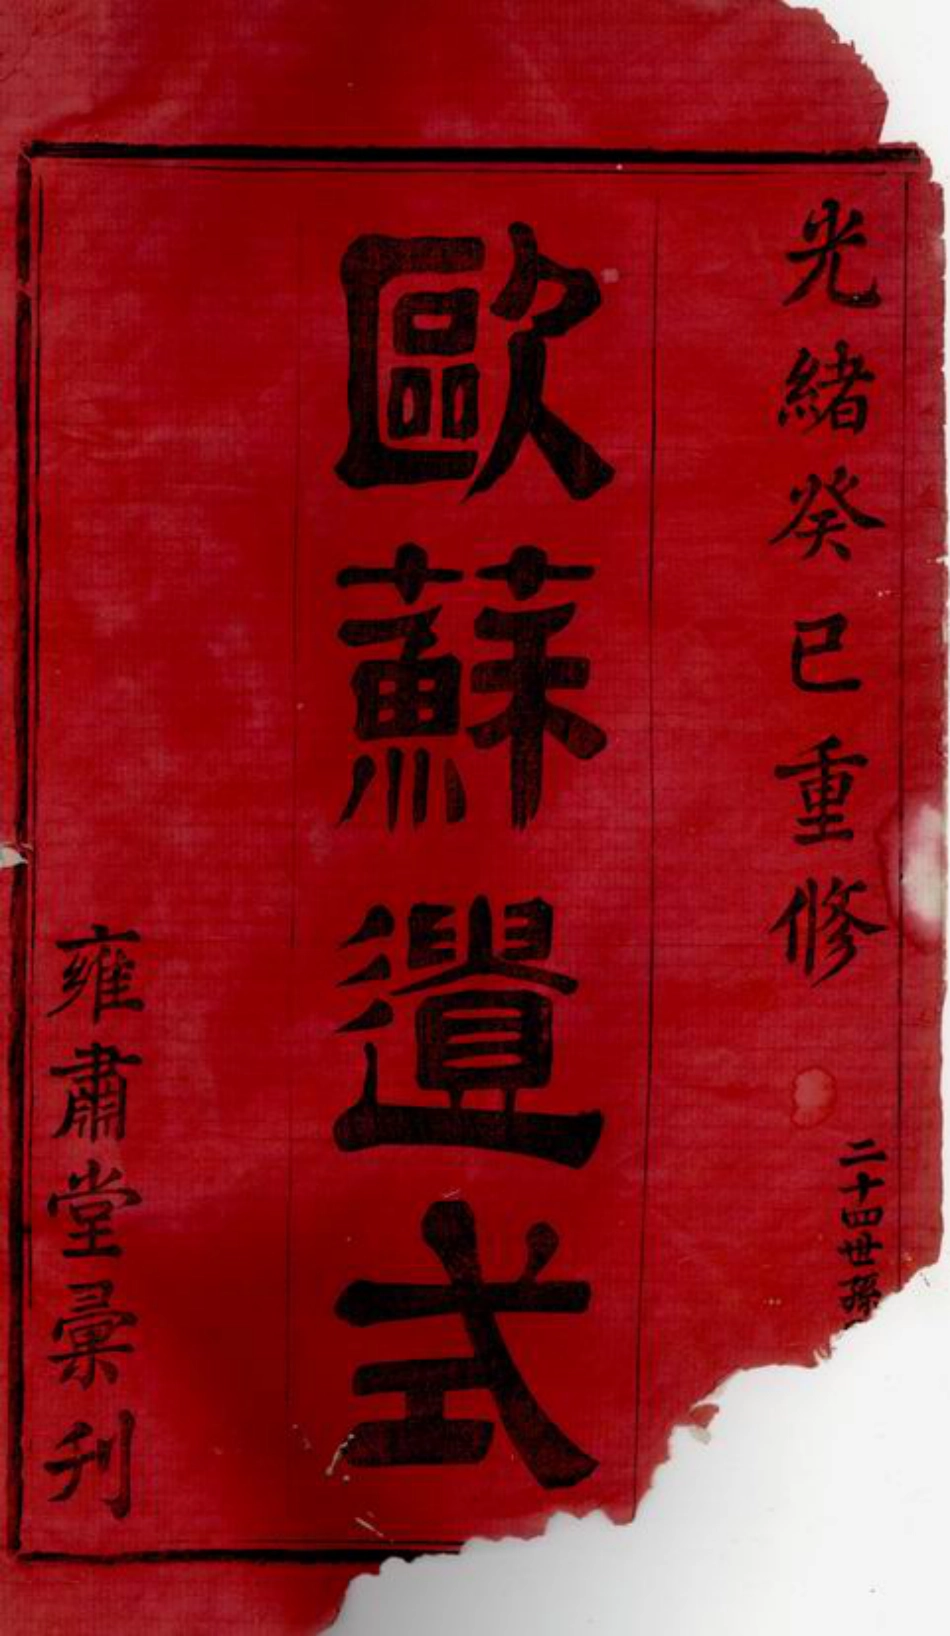 光緒癸巳重修
二十四世孫
歐蘇遺式
雍肅堂彙刊